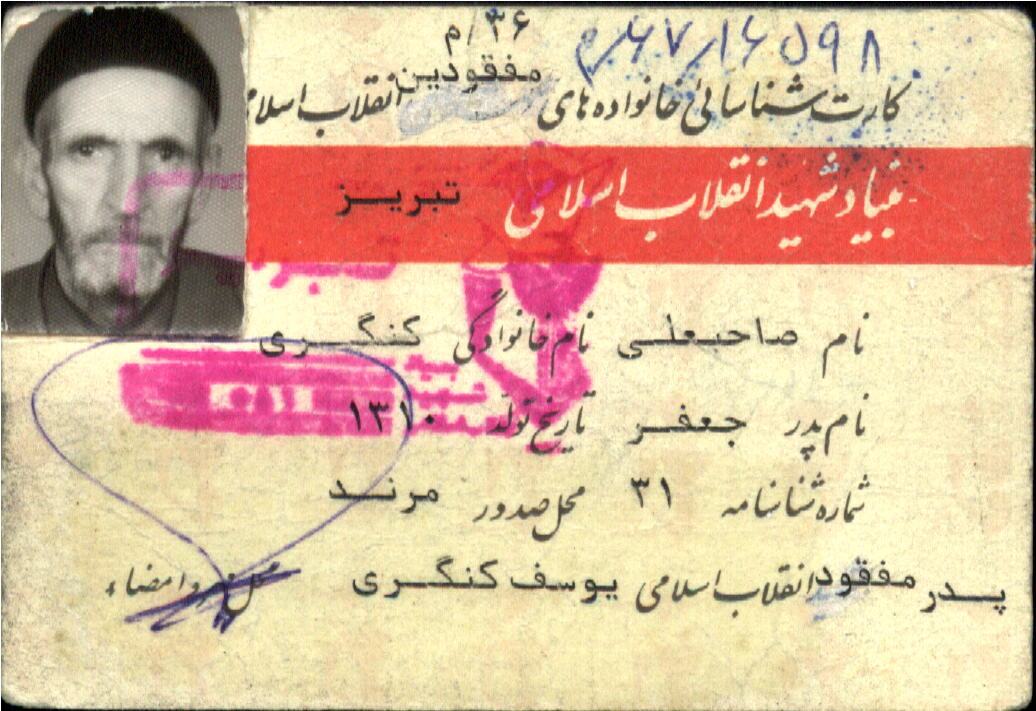 ۳۶/م
۶۷/۱۶۵۹۸
کارت شناسائی خانواده های مفقودین انقلاب اسلامی
بنیاد شهید انقلاب اسلامی تبریز
نام صاحبعلی نام خانوادگی کنگری
نام پدر جعفر تاریخ تولد ۱۳۱۰
شماره شناسنامه ۳۱ محل صدور مرند
پدر مفقود انقلاب اسلامی یوسف کنگری محل مهر و امضاء